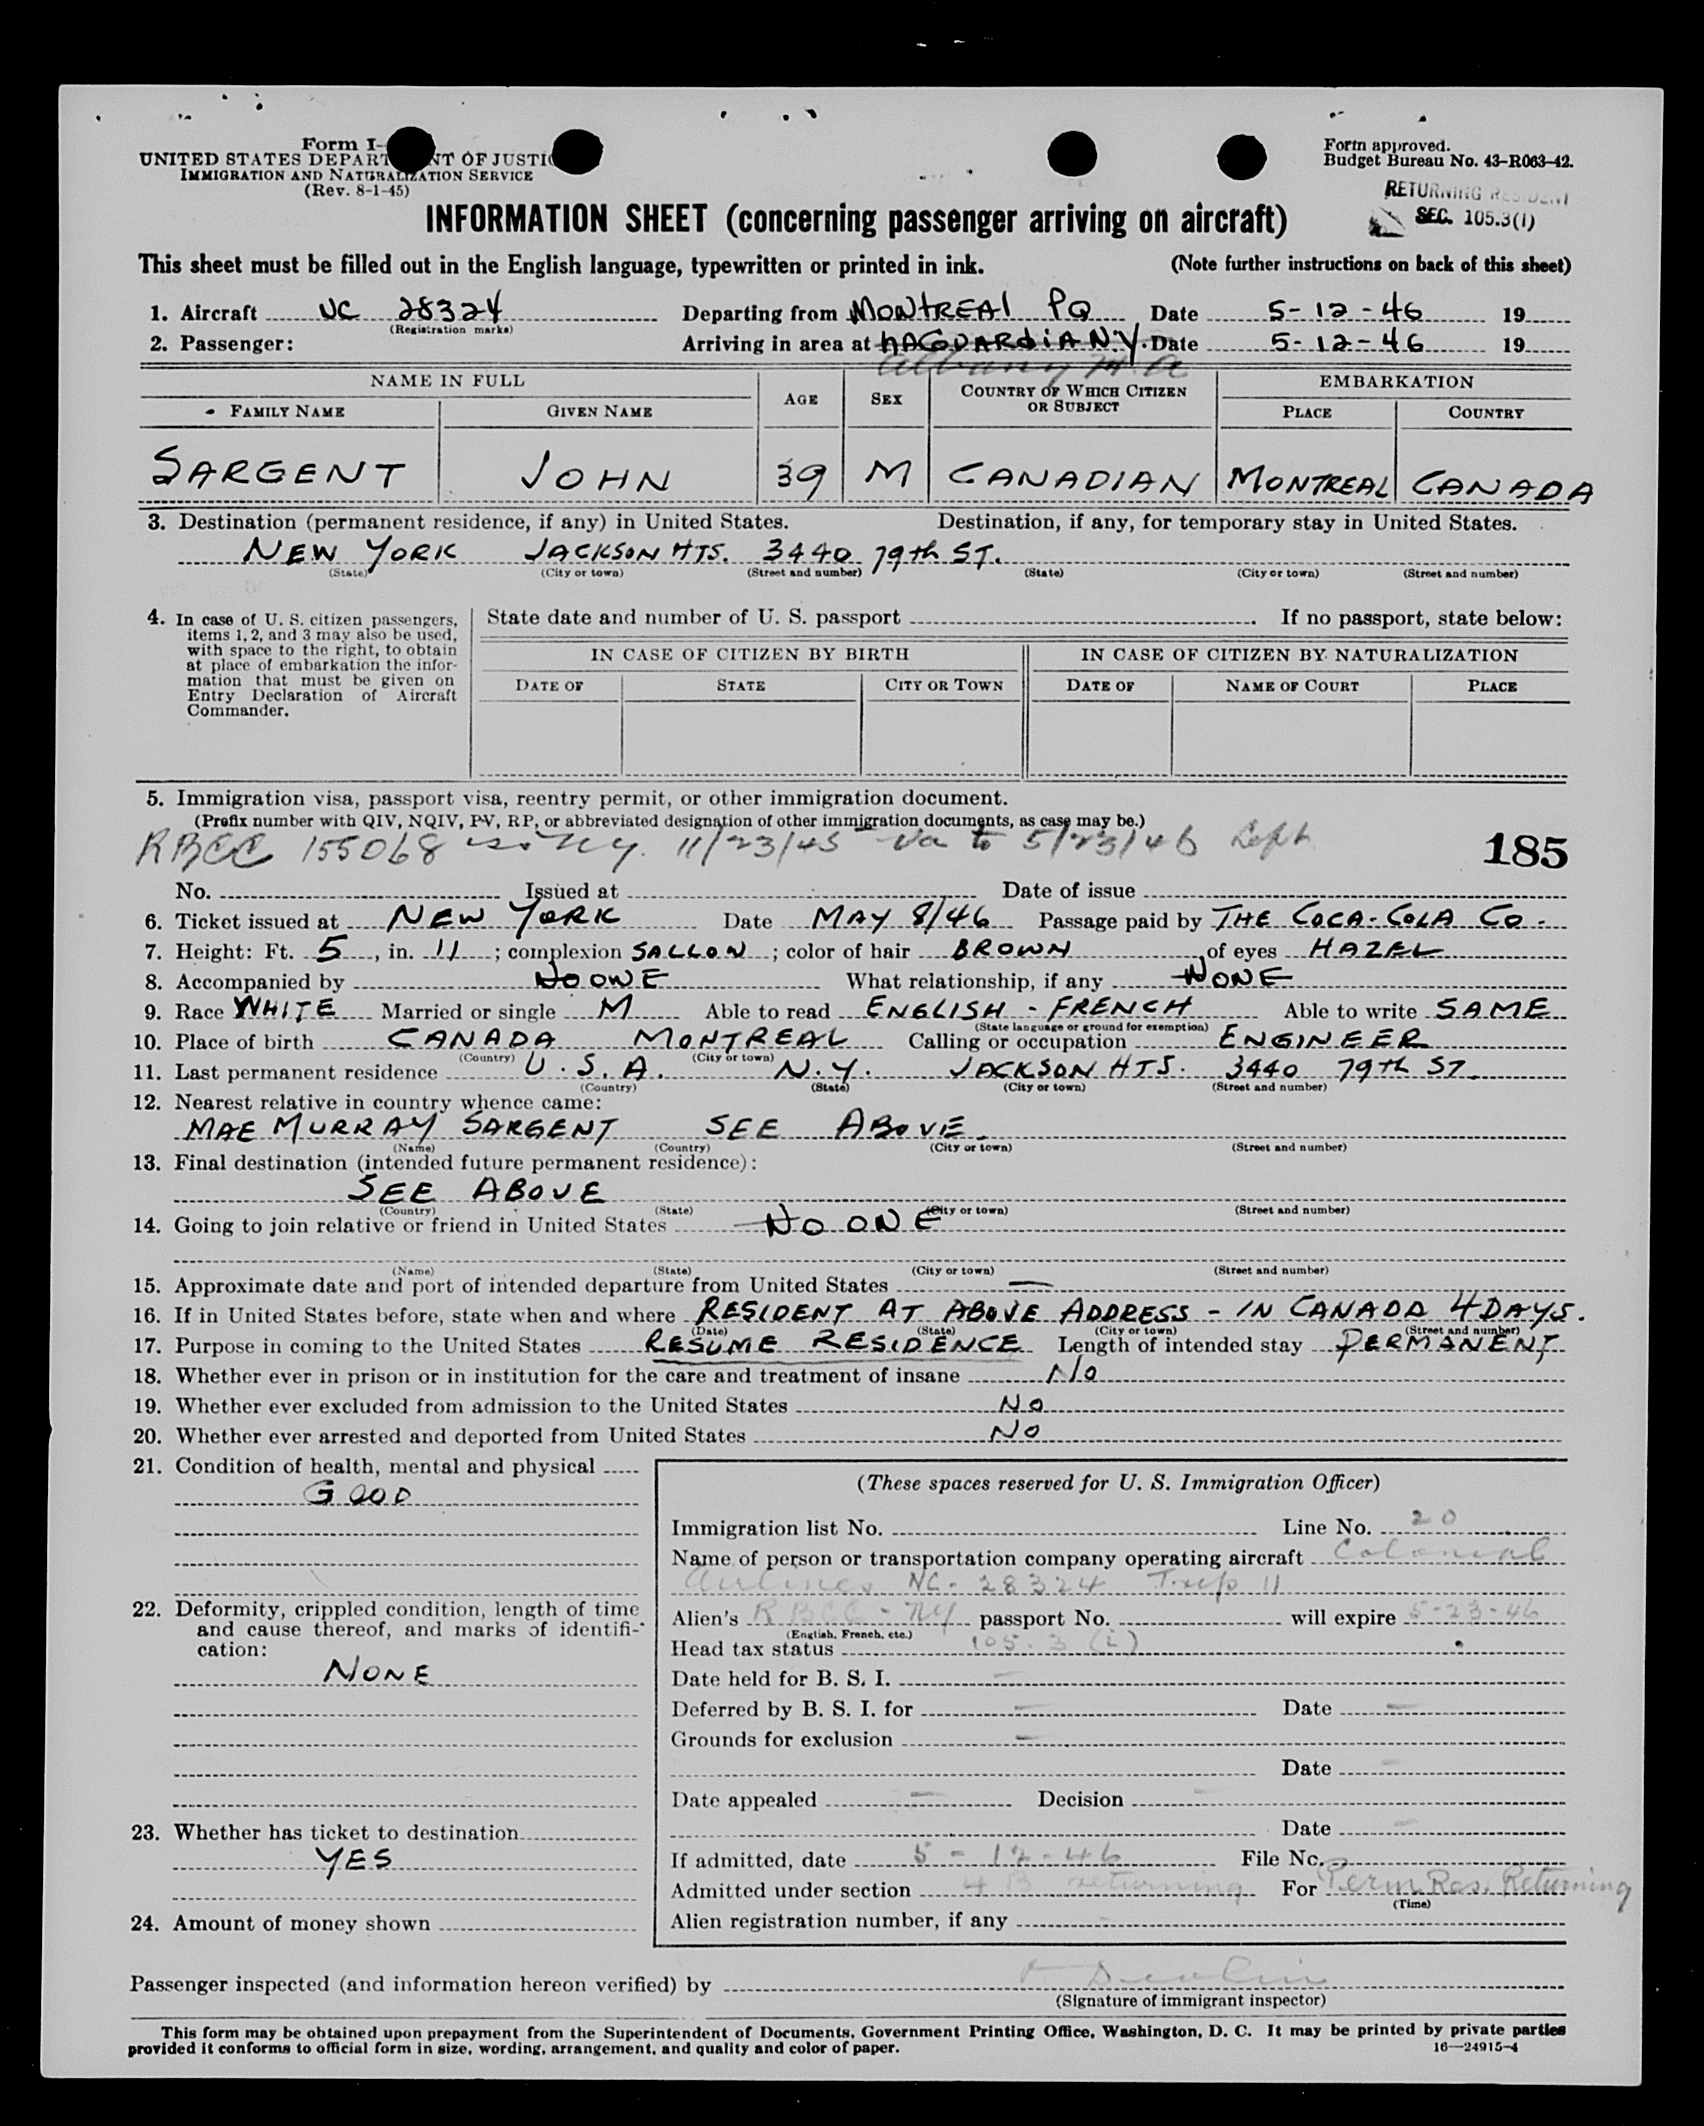 Form I-
UNITED STATES DEPART NT OF JUSTI
IMMIGRATION AND NATURALIZATION SERVICE
(Rev. 8-1-45)
Form approved.
Budget Bureau No. 43-R063-42.
RETURNING RESIDENT
SEC. 105.3(1)
INFORMATION SHEET (concerning passenger arriving on aircraft)
This sheet must be filled out in the English language, typewritten or printed in ink. (Note further instructions on back of this sheet)
1. Aircraft NC 28324 Departing from MONTREAL PQ Date 5-12-46 19
(Registration marks)
2. Passenger: Arriving in area at LAGUARDIA N.Y. Date 5-12-46 19
Albany
NAME IN FULL AGE SEX COUNTRY OF WHICH CITIZEN OR SUBJECT EMBARKATION
FAMILY NAME GIVEN NAME PLACE COUNTRY
SARGENT JOHN 39 M CANADIAN MONTREAL CANADA
3. Destination (permanent residence, if any) in United States. Destination, if any, for temporary stay in United States.
NEW YORK JACKSON HTS. 3440 79th ST.
(State) (City or town) (Street and number) (State) (City or town) (Street and number)
4. In case of U. S. citizen passengers, items 1, 2, and 3 may also be used, with space to the right, to obtain at place of embarkation the information that must be given on Entry Declaration of Aircraft Commander.
State date and number of U. S. passport . If no passport, state below:
IN CASE OF CITIZEN BY BIRTH IN CASE OF CITIZEN BY NATURALIZATION
DATE OF STATE CITY OR TOWN DATE OF NAME OF COURT PLACE
5. Immigration visa, passport visa, reentry permit, or other immigration document.
(Prefix number with QIV, NQIV, PV, RP, or abbreviated designation of other immigration documents, as case may be.)
RBCC 155068 iss NY. 11/23/45 Va to 5/23/46 185
No. Issued at Date of issue
6. Ticket issued at NEW YORK Date MAY 8/46 Passage paid by THE COCA-COLA CO.
7. Height: Ft. 5, in. 11; complexion SALLOW; color of hair BROWN of eyes HAZEL
8. Accompanied by NO ONE What relationship, if any NONE
9. Race WHITE Married or single M Able to read ENGLISH - FRENCH Able to write SAME
(State language or ground for exemption)
10. Place of birth CANADA MONTREAL Calling or occupation ENGINEER
(Country) (City or town)
11. Last permanent residence U.S.A. N.Y. JACKSON HTS. 3440 79th ST.
(Country) (State) (City or town) (Street and number)
12. Nearest relative in country whence came:
MAE MURRAY SARGENT SEE ABOVE
(Name) (Country) (City or town) (Street and number)
13. Final destination (intended future permanent residence):
SEE ABOVE
(Country) (State) (City or town) (Street and number)
14. Going to join relative or friend in United States NO ONE
(Name) (State) (City or town) (Street and number)
15. Approximate date and port of intended departure from United States —
16. If in United States before, state when and where RESIDENT AT ABOVE ADDRESS - IN CANADA 4 DAYS.
(Date) (State) (City or town) (Street and number)
17. Purpose in coming to the United States RESUME RESIDENCE Length of intended stay PERMANENT
18. Whether ever in prison or in institution for the care and treatment of insane NO
19. Whether ever excluded from admission to the United States NO
20. Whether ever arrested and deported from United States NO
21. Condition of health, mental and physical
GOOD
22. Deformity, crippled condition, length of time and cause thereof, and marks of identification:
NONE
23. Whether has ticket to destination
YES
24. Amount of money shown
(These spaces reserved for U. S. Immigration Officer)
Immigration list No. Line No. 20
Name of person or transportation company operating aircraft Colonial
Airlines NC-28324 Trip 11
Alien's RBCC - NY passport No. will expire 5-23-46
(English, French, etc.)
Head tax status 105.3 (i)
Date held for B. S. I. —
Deferred by B. S. I. for — Date —
Grounds for exclusion —
Date —
Date appealed — Decision —
Date —
If admitted, date 5-12-46 File No.
Admitted under section 4B returning For Perm Res. Returning
(Time)
Alien registration number, if any -
Passenger inspected (and information hereon verified) by
(Signature of immigrant inspector)
This form may be obtained upon prepayment from the Superintendent of Documents, Government Printing Office, Washington, D. C. It may be printed by private parties
provided it conforms to official form in size, wording, arrangement, and quality and color of paper. 16—24915-4